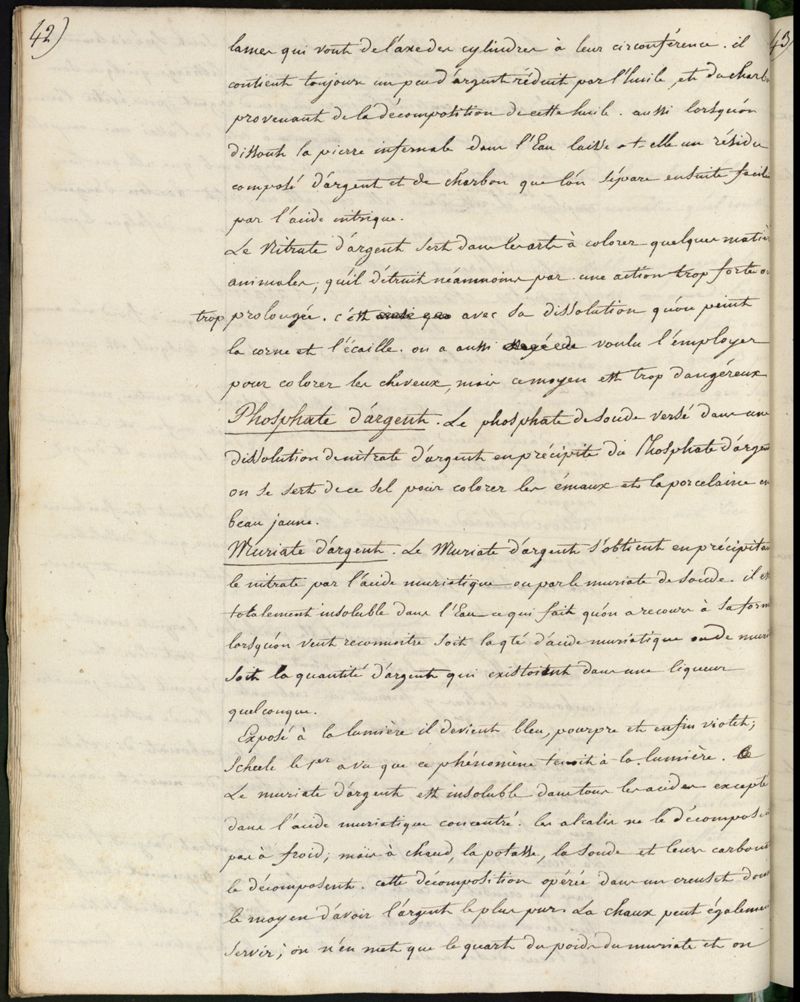 42)
lames qui vont de l'axe des cylindres à leur circonférence. il
contient toujours un peu d'argent réduit par l'huile, et du charb
provenant de la décomposition de cette huile. aussi lorsqu'on
dissout la pierre infernale dans l'Eau laisse-t-elle un résidu
composé d'argent et de charbon que l'on sépare ensuite facile
par l'acide nitrique.
Le Nitrate d'argent sert dans les arts à colorer quelques matiè
animales, qu'il détruit néanmoins par une action trop forte o
trop prolongée. c'est avec sa dissolution qu'on peint
la corne et l'écaille. on a aussi voulu l'employer
pour colorer les cheveux, mais ce moyen est trop dangéreux
Phosphate d'argent. Le phosphate de soude versé dans une
dissolution de nitrate d'argent en précipite du Phosphate d'argen
on se sert de ce sel pour colorer les émaux et la porcelaine en
beau jaune.
Muriate d'argent. Le Muriate d'argent s'obtient en précipitan
le nitrate par l'acide muriatique ou par le muriate de soude. il es
totalement insoluble dans l'Eau ce qui fait qu'on a recours à sa form
lorsqu'on veut reconnoitre soit la qté d'acide muriatique ou de muri
soit la quantité d'argent qui existoient dans une liqueur
quelconque.
Exposé à la lumière il devient bleu, pourpre et enfin violet;
Scheele le 1er a vu que ce phénomène tenoit à la lumière.
Le muriate d'argent est insoluble dans tous les acides excepté
dans l'acide muriatique concentré. les alcalis ne le décompose
pas à froid; mais à chaud, la potasse, la soude et leurs carbona
le décomposent. cette décomposition opérée dans un creuset donn
le moyen d'avoir l'argent le plus pur. La chaux peut égaleme
servir; on n'en met que le quart du poids du muriate et on
43)